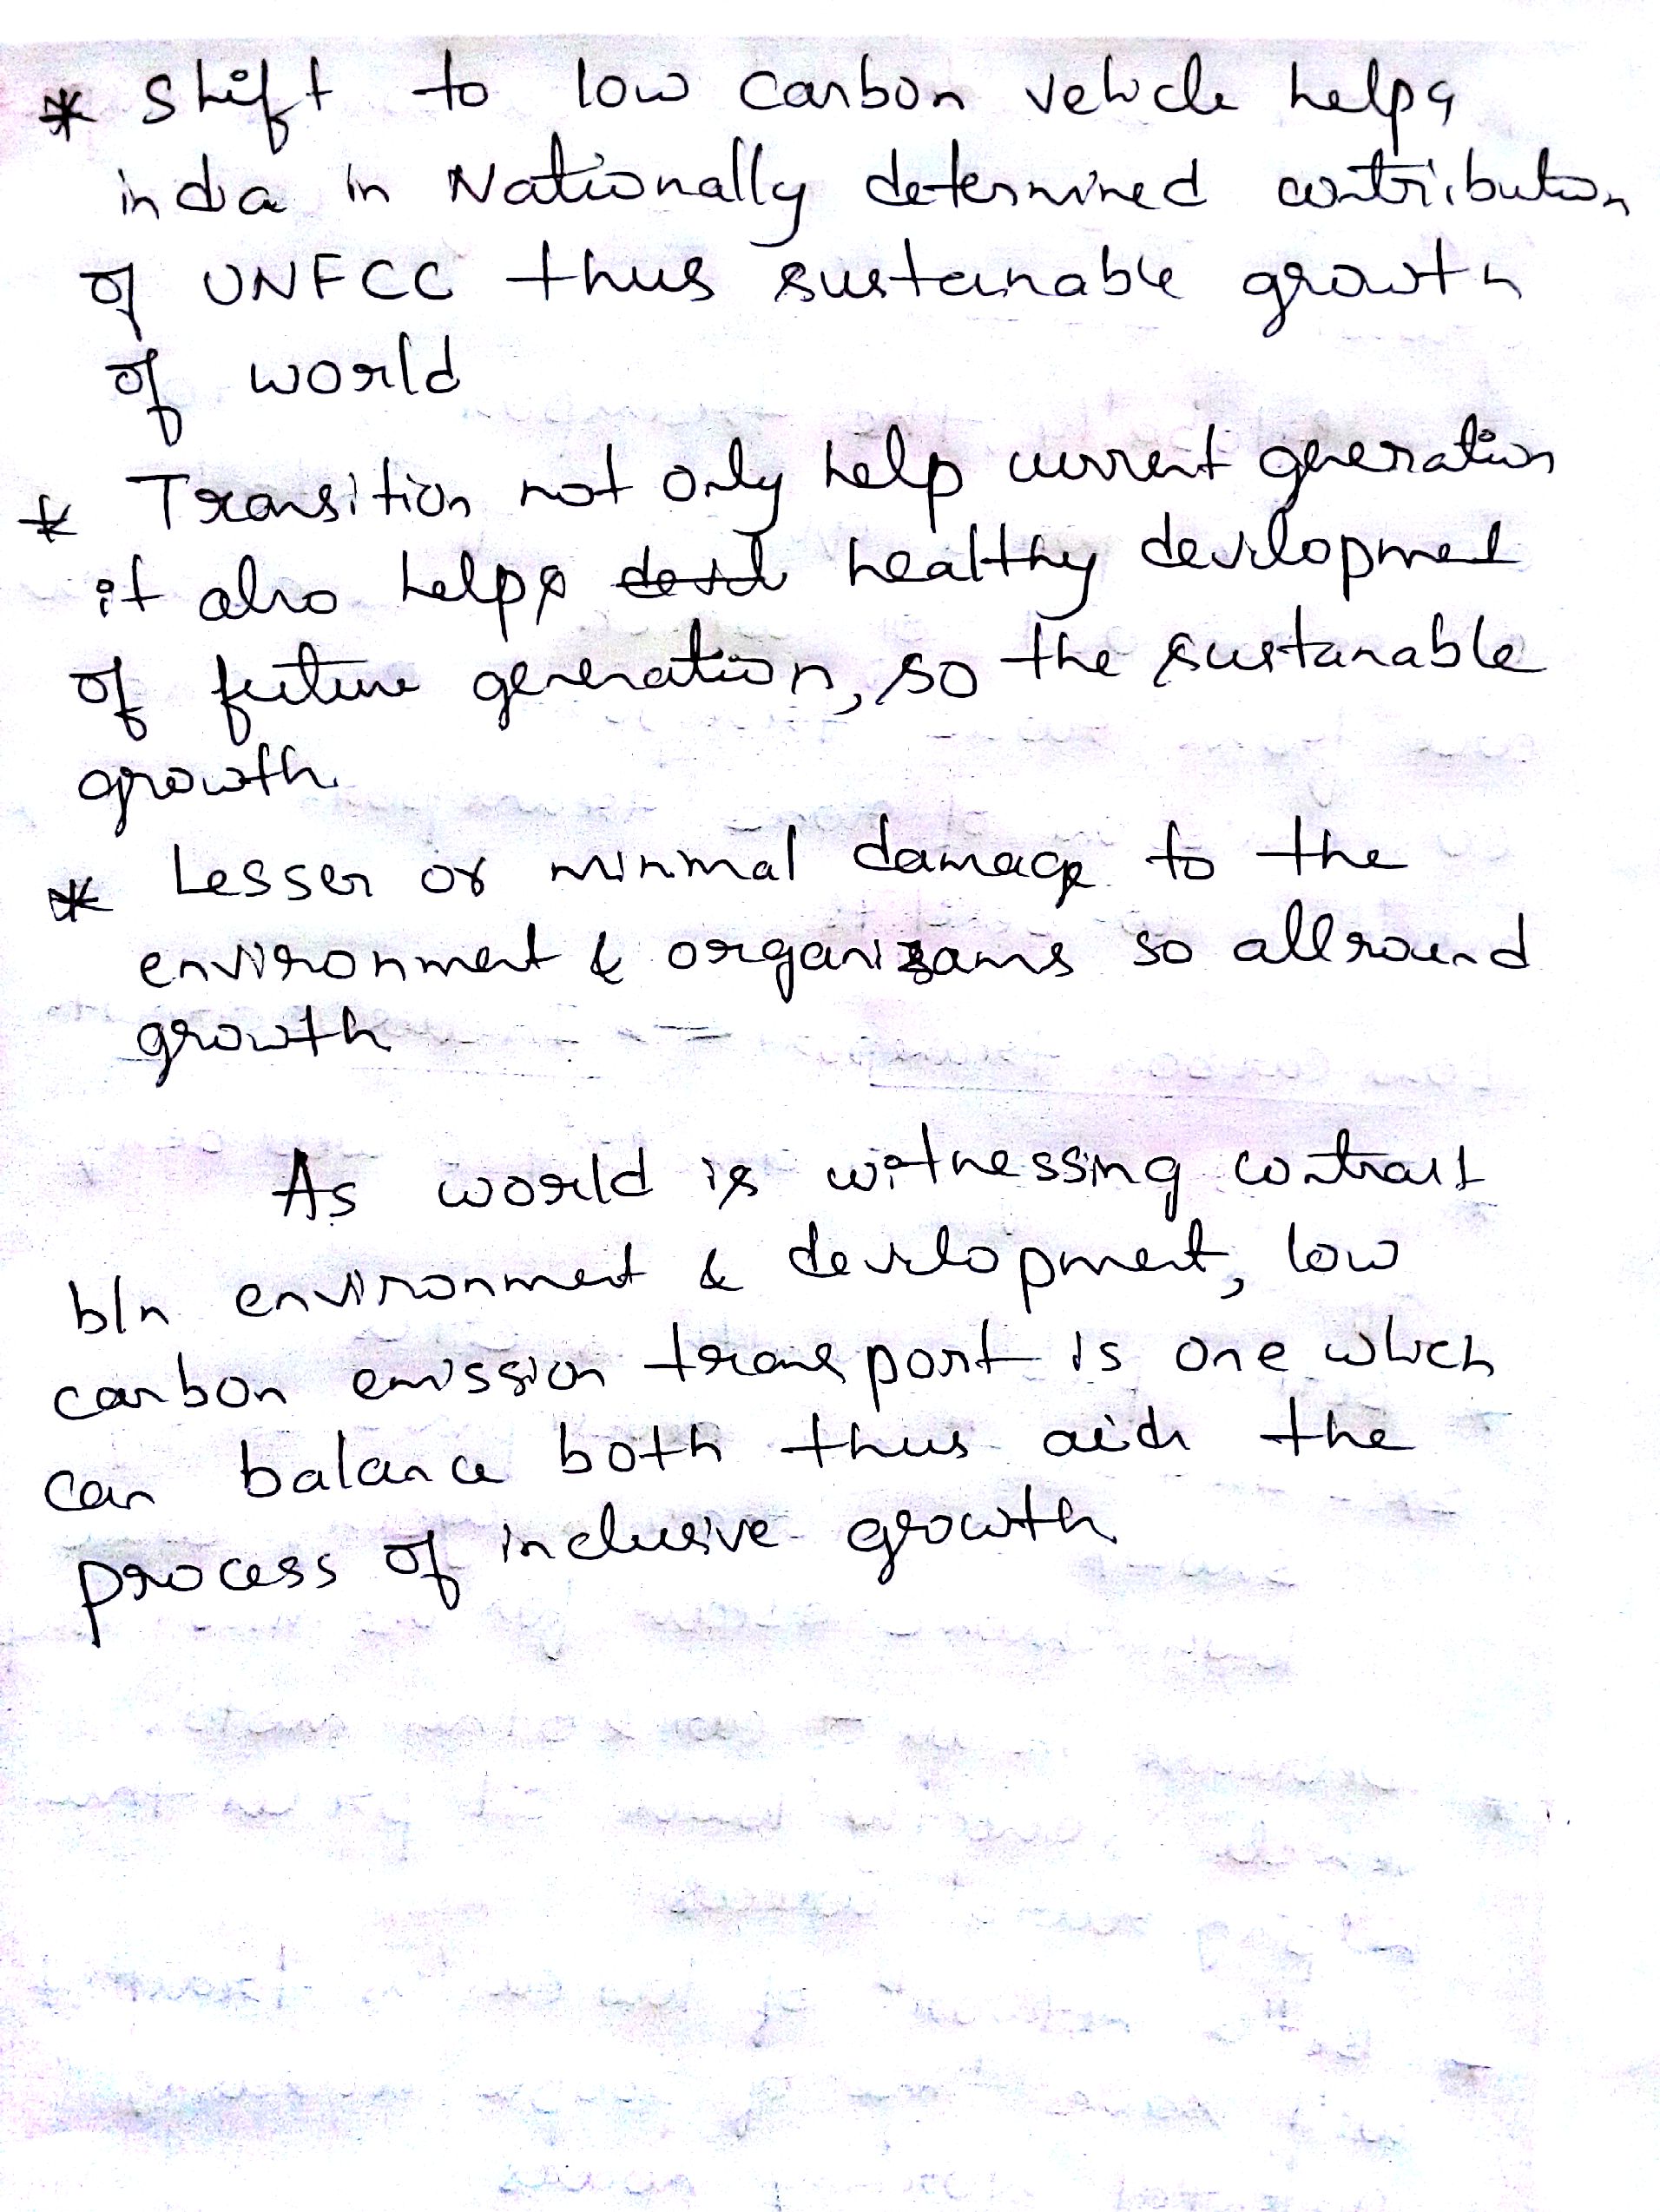 * Shift to low carbon vehicle helps
india in Nationally determined contribution
of UNFCC thus sustainable growth
of world
* Transition not only help current generation
it also helps healthy development
of future generation, so the sustanable
growth
* Lesser or minmal damage to the
environment & organizams so allround
growth
As world is witnessing contrast
b/n environment & development, low
carbon emission transport is one which
can balance both thus aids the
process of inclusive growth